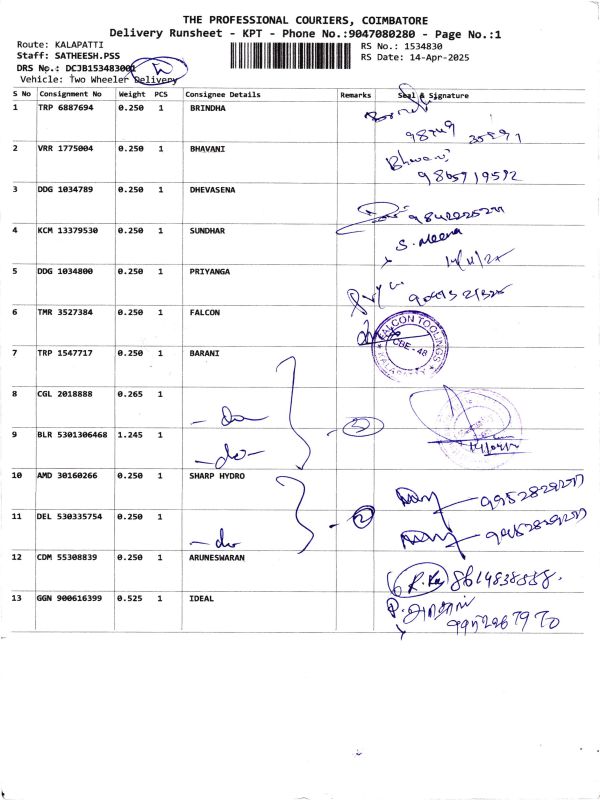 THE PROFESSIONAL COURIERS, COIMBATORE
Delivery Runsheet - KPT - Phone No.:9047080280 - Page No.:1
Route: KALAPATTI
RS No.: 1534830
Staff: SATHEESH.PSS
RS Date: 14-Apr-2025
DRS No.: DCJB153483001
Vehicle: Two Wheeler Delivery
S No Consignment No Weight PCS Consignee Details Remarks Seal & Signature
1 TRP 6887694 0.250 1 BRINDHA
2 VRR 1775004 0.250 1 BHAVANI Bhavani
9865719592
3 DDG 1034789 0.250 1 DHEVASENA
4 KCM 13379530 0.250 1 SUNDHAR S. Meena
5 DDG 1034800 0.250 1 PRIYANGA
6 TMR 3527384 0.250 1 FALCON FALCON TOOLINGS
CBE - 48
7 TRP 1547717 0.250 1 BARANI
8 CGL 2018888 0.265 1
- do 3
9 BLR 5301306468 1.245 1
- do -
10 AMD 30160266 0.250 1 SHARP HYDRO
11 DEL 530335754 0.250 1 2
- do
12 CDM 55308839 0.250 1 ARUNESWARAN
13 GGN 900616399 0.525 1 IDEAL